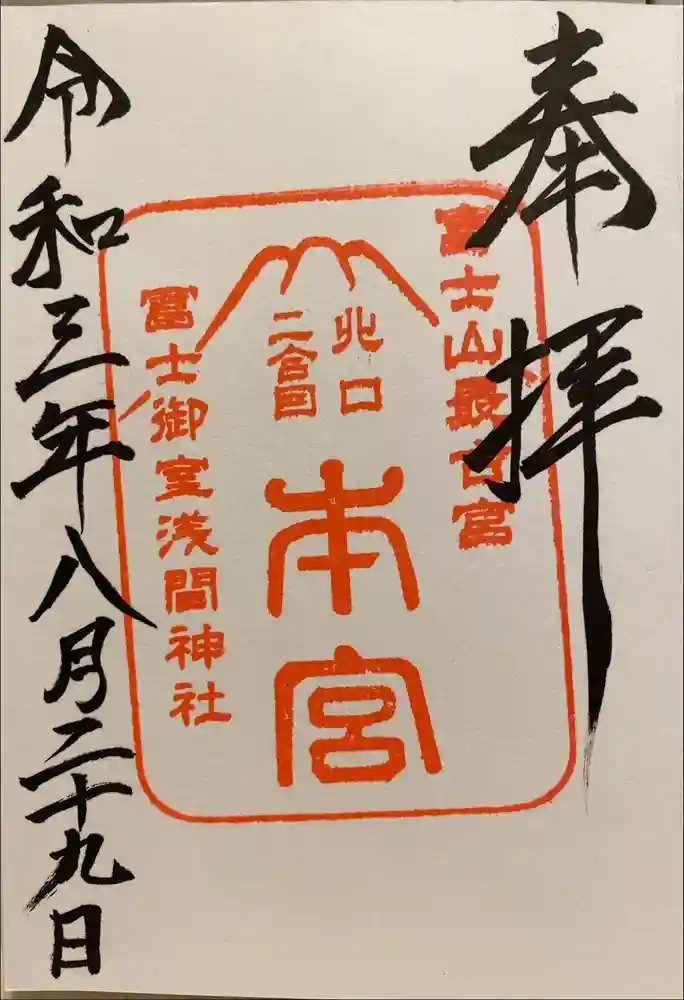 奉拝
冨士山最古宮
北口
二合目
本宮
冨士御室浅間神社
令和三年八月二十九日